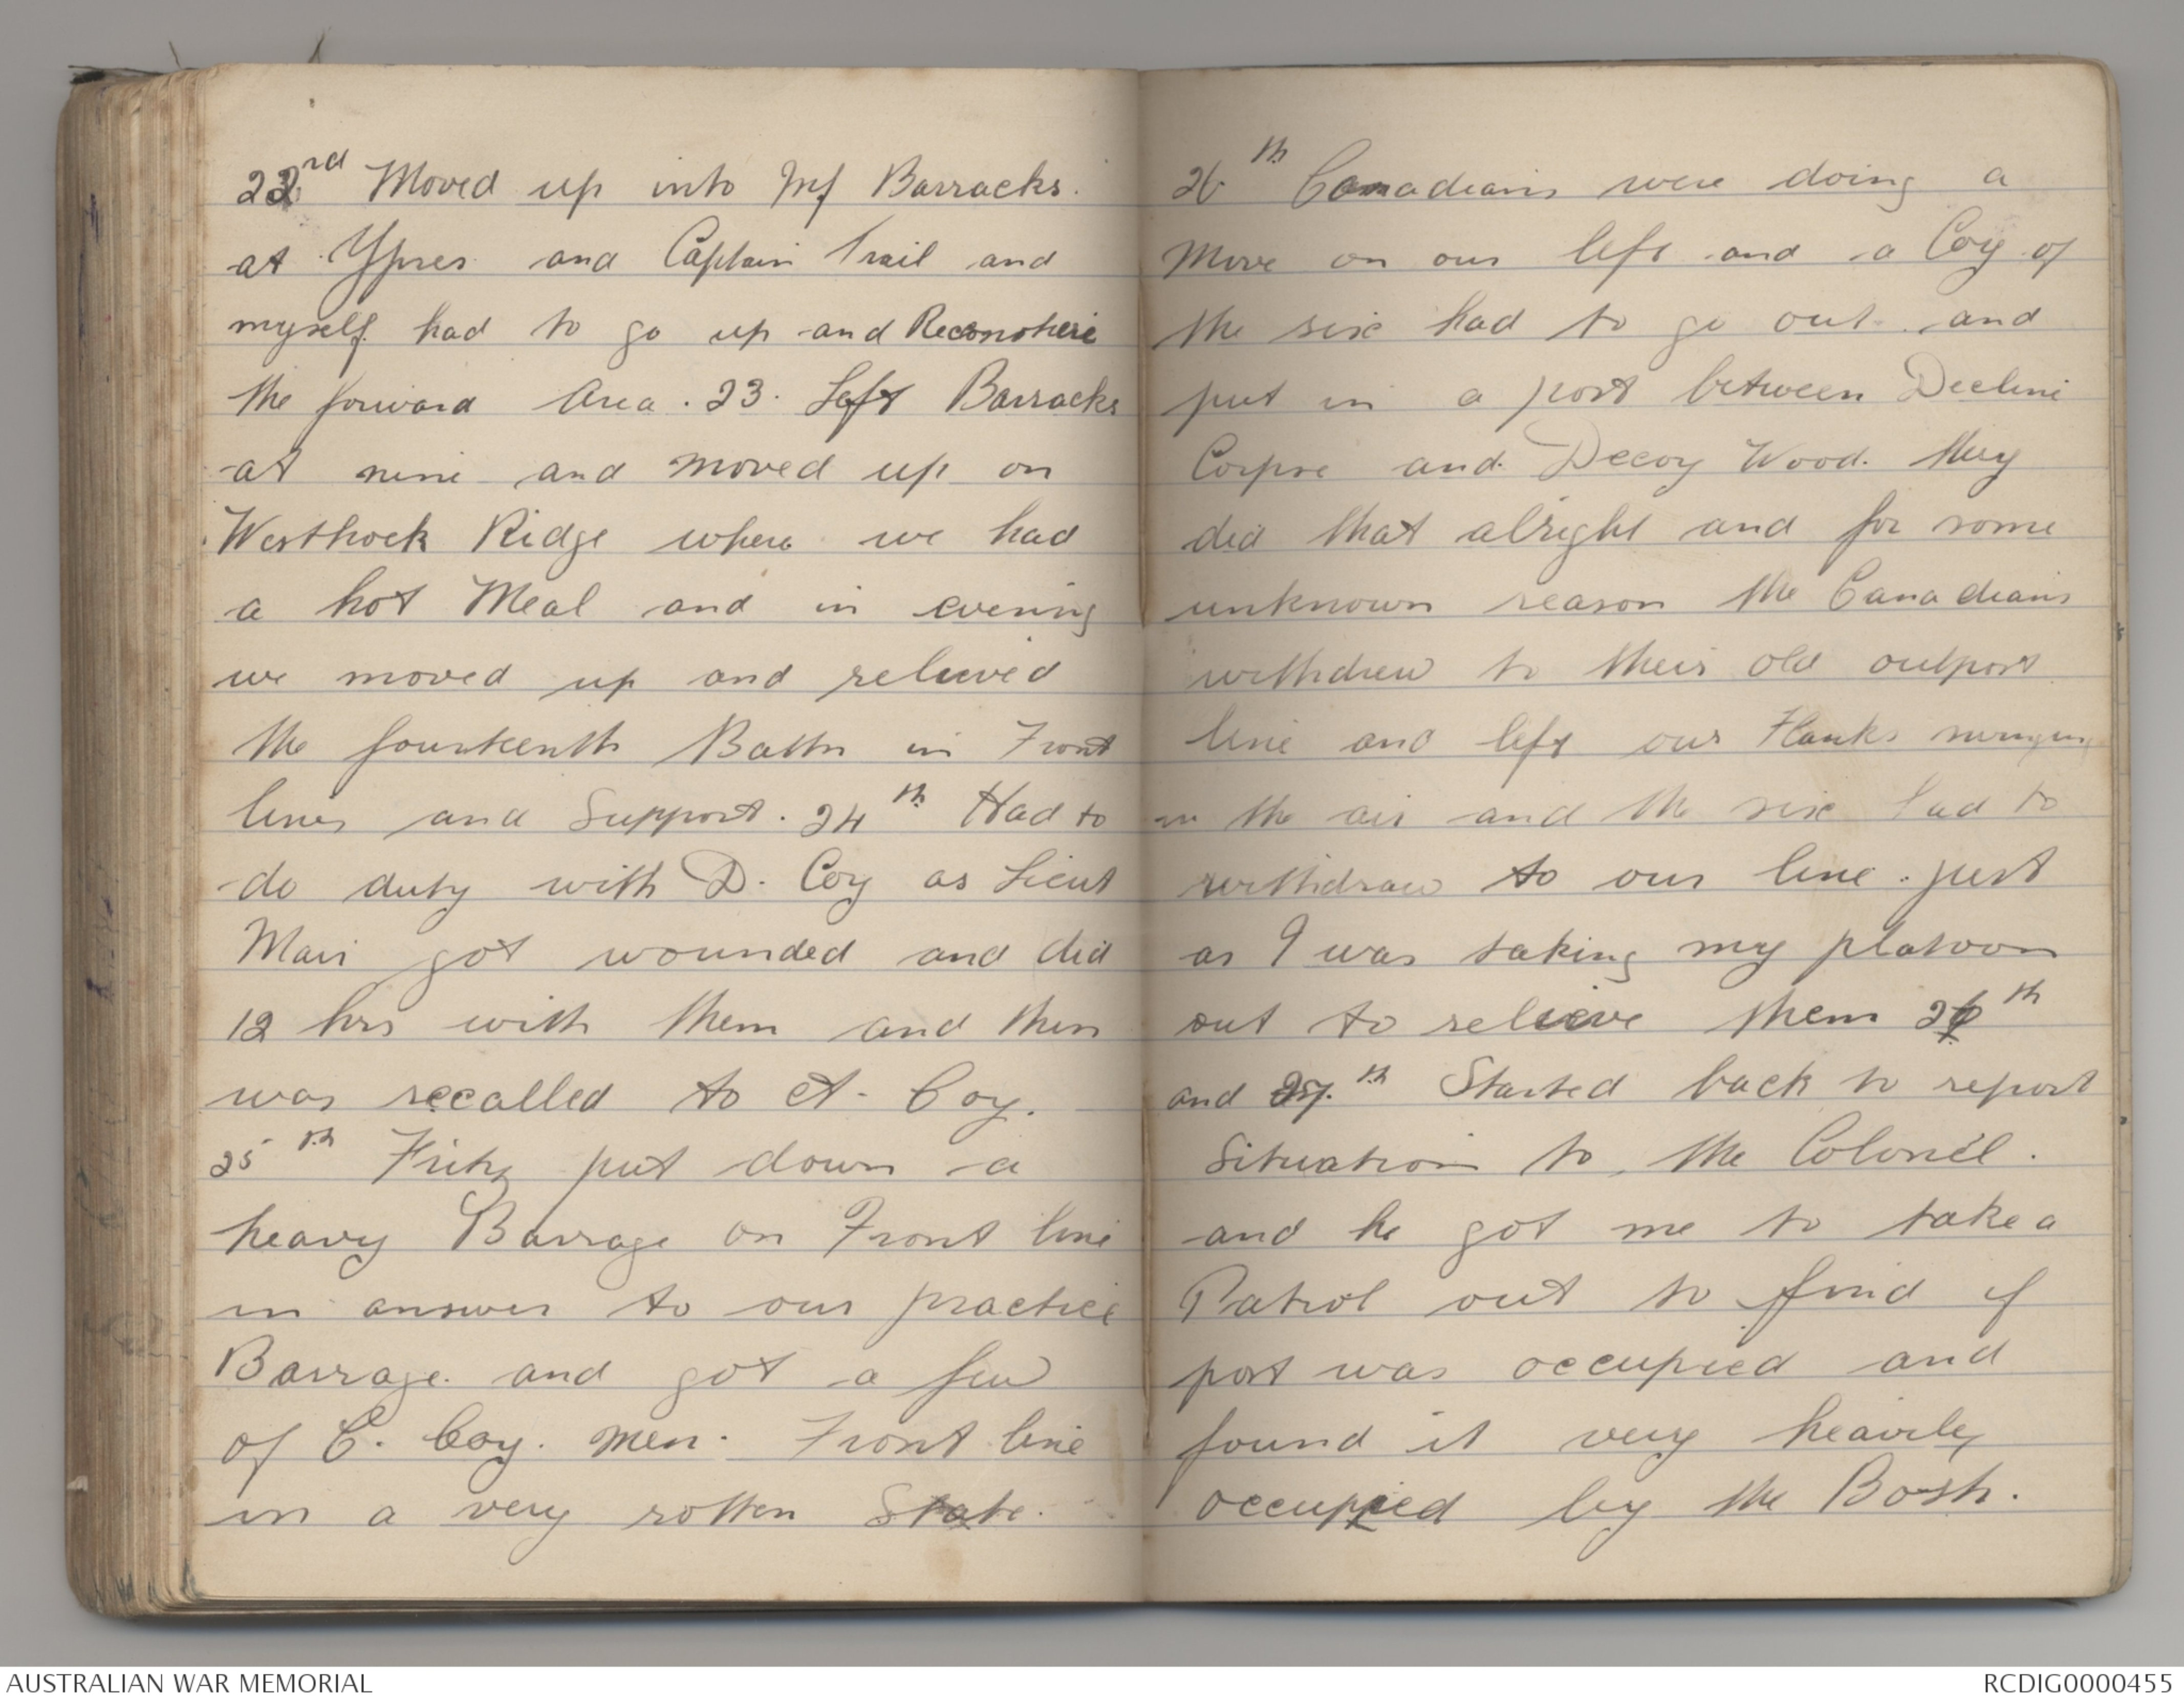 22rd Moved up into Inf Barracks.
at Ypres and Captain Trail and
myself had to go up and
the forward Area. 23. Left Barracks
at nine and moved up on
Westhoek Ridge where we had
a hot Meal and in evening
we moved up and relieved
the fourteenth Battn in Front
lines and Support. 24th Had to
do duty with D. Coy as Lieut
Mair got wounded and did
12 hrs with them and then
was recalled to A. Coy.
25th Fritz put down a
heavy Barrage on Front line
in answer to our practice
Barrage. and got a few
of C. Coy. men. Front line
in a very rotten State.
26th Canadians were doing a
Move on our left and a Coy of
the six had to go out and
put in a post between Decline
Corpse and Decoy Wood. They
did that alright and for some
unknown reason the Canadians
withdrew to their old outpost
line and left our Flanks swinging
in the air and the six had to
withdraw to our line. just
as I was taking my platoon
out to relieve them 26th
and 27.th Started back to report
Situation to the Colonel.
and he got me to take a
Patrol out to find if
post was occupied and
found it very heavily
occupied by the Bosh.
AUSTRALIAN WAR MEMORIAL
RCDIG0000455